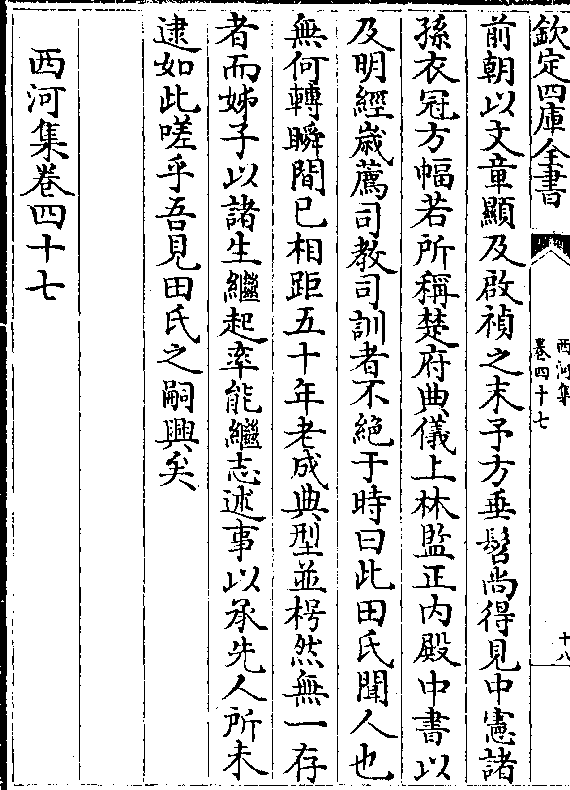 欽定四庫全書
西河集
卷四十七
十八
前朝以文章顯及啟禎之末予方垂髫尚得見中憲諸
孫衣冠方幅若所稱楚府典儀上林監正内殿中書以
及明經歲薦司教司訓者不絶于時曰此田氏聞人也
無何轉瞬間已相距五十年老成典型並枵然無一存
者而姊子以諸生繼起率能繼志述事以承先人所未
逮如此嗟乎吾見田氏之嗣興矣
西河集卷四十七